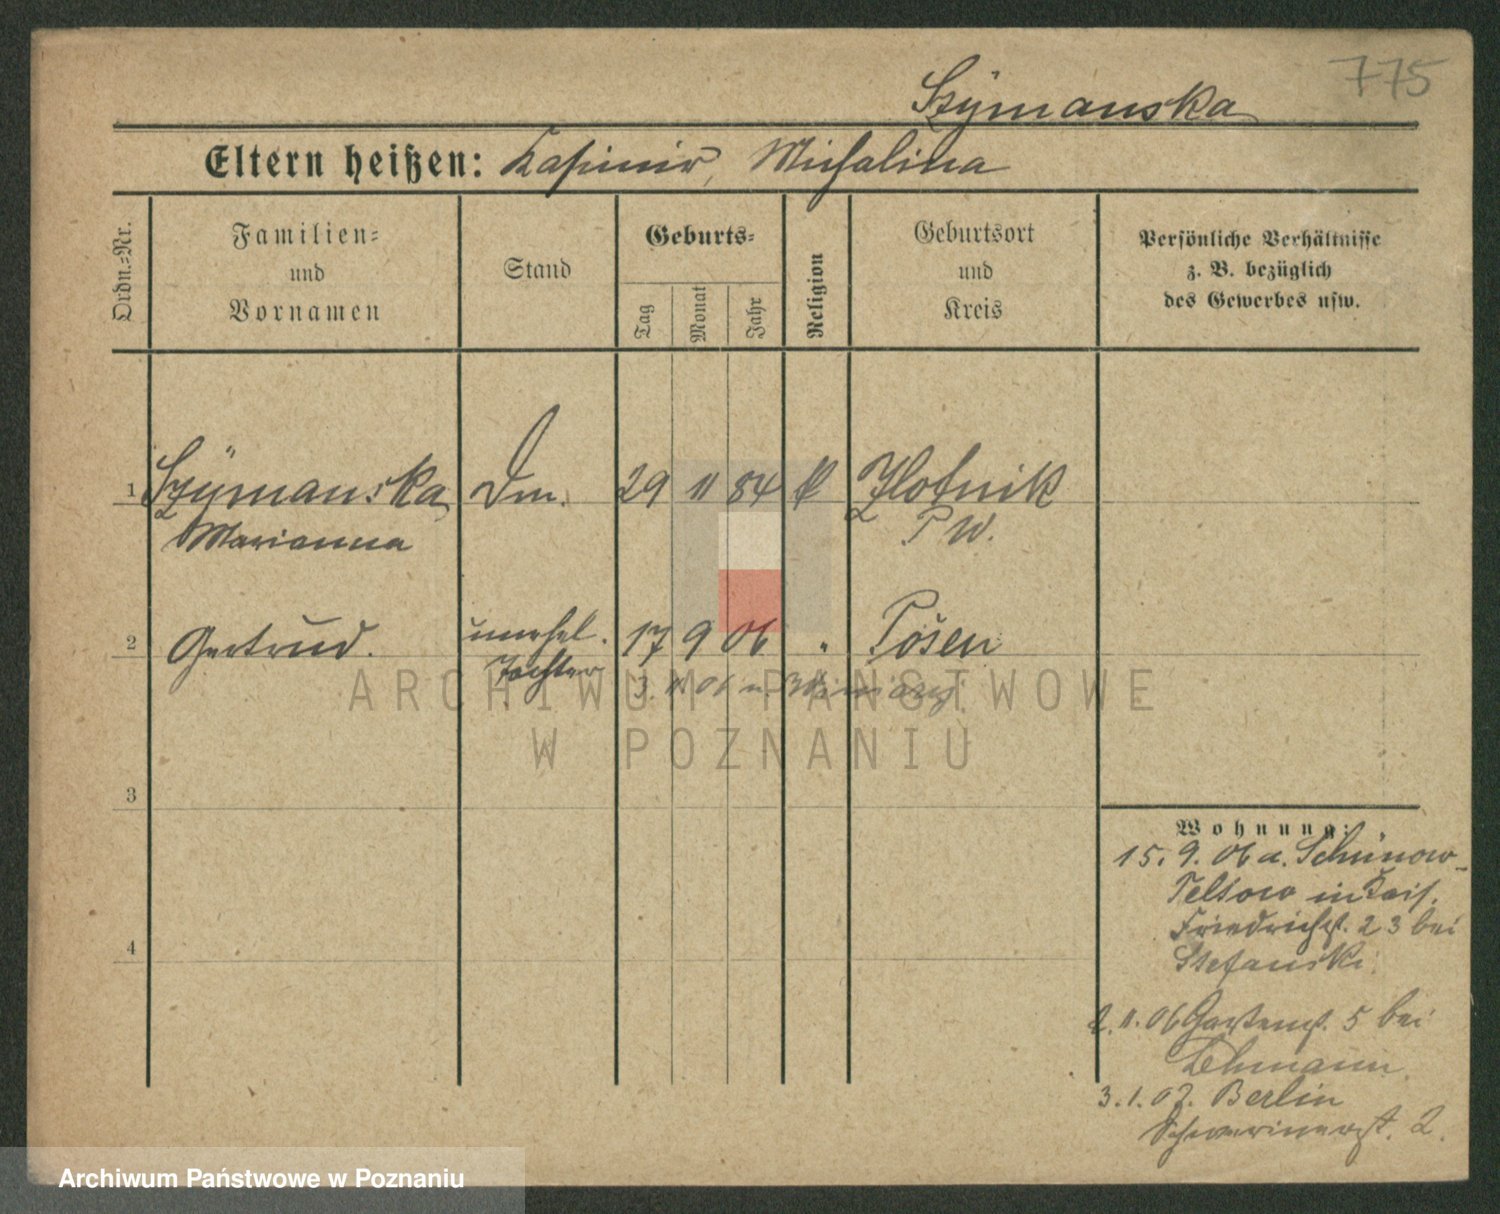 775
Szymanska
Eltern heißen: Kasimir, Michalina
Ordn.=Nr.
Familien=
und
Vornamen
Stand
Geburts=
Tag
Monat
Jahr
Religion
Geburtsort
und
Kreis
Persönliche Verhältnisse
z. B. bezüglich
des Gewerbes usw.
1 Szymanska Dm. 29 11 84 k Zlotnik
Marianna P W.
2 Gertrud. unehel. 17 9 06 " Posen
Tochter
3. 11. 06 n.
ARCHIWUM PAŃSTWOWE
W POZNANIU
3
4
Wohnung:
15. 9. 06 a. Schünow-
Teltow in Kais.
Friedrichst. 23 bei
Stefanski
2. 11. 06 Gartenst. 5 bei
Lehmann
3. 1. 07. Berlin
Schwerinerst. 2.
Archiwum Państwowe w Poznaniu